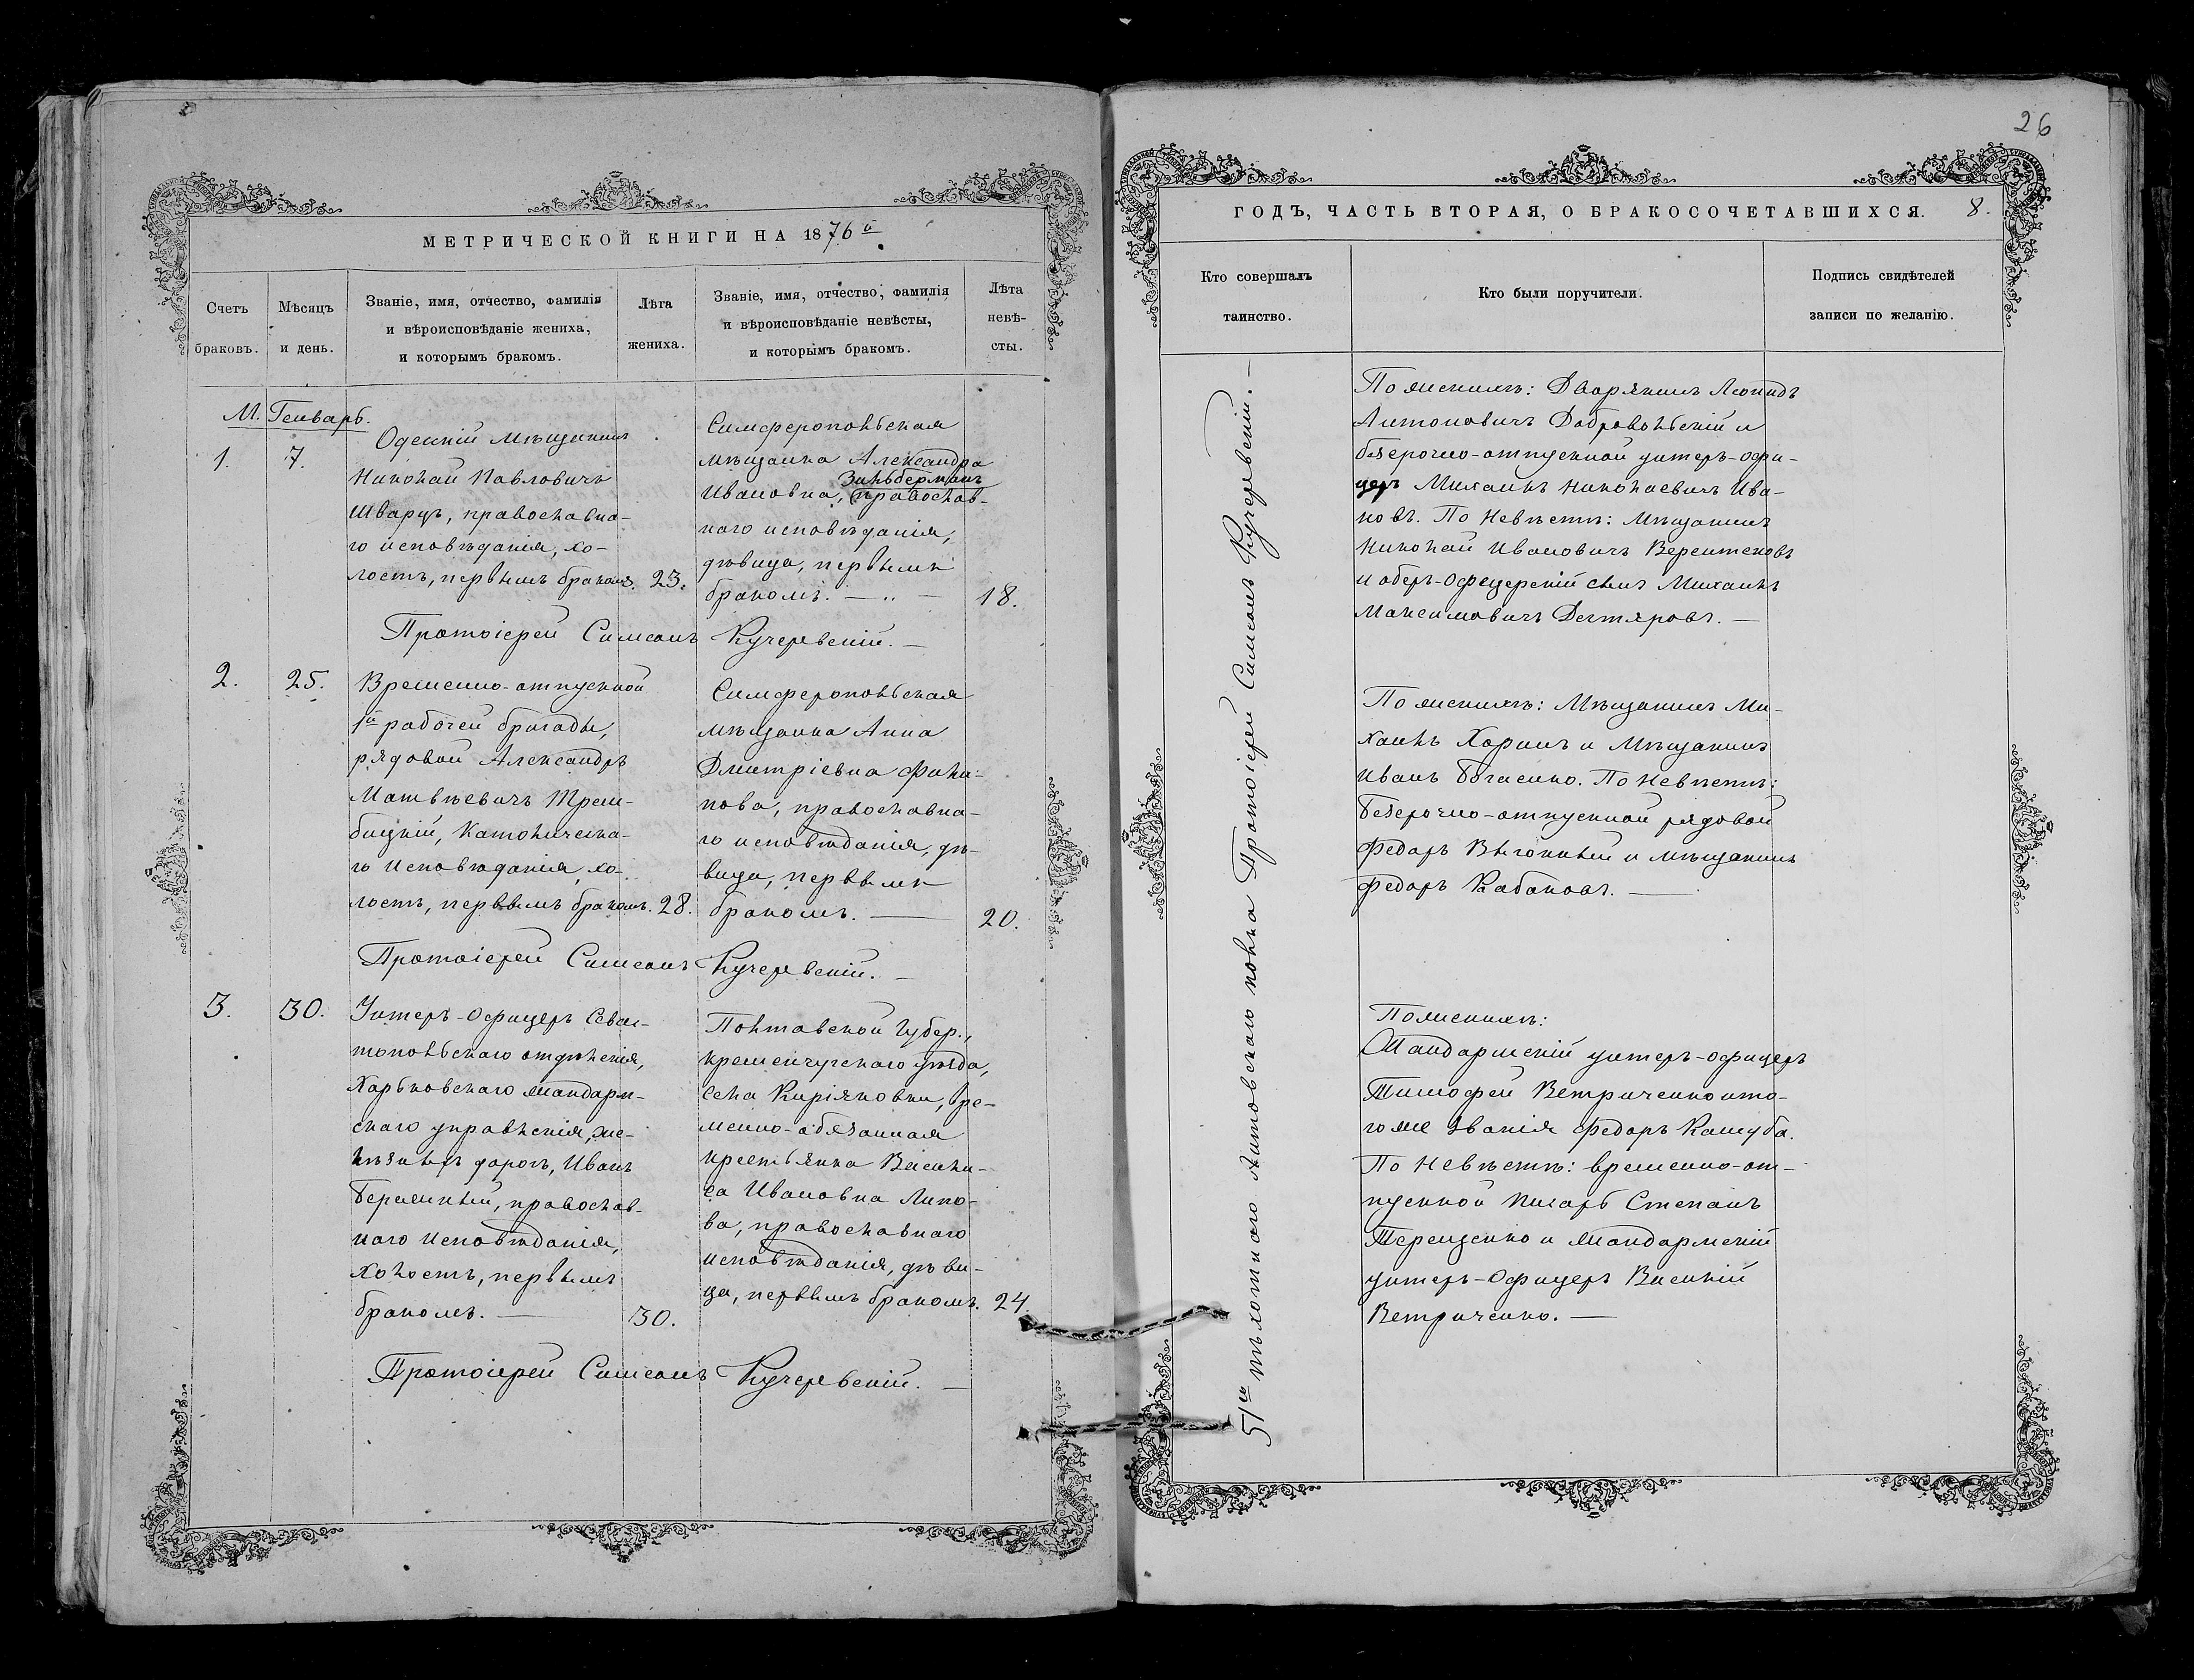 МЕТРИЧЕСКОЙ КНИГИ НА 1876й
Счетъ браковъ.
Мѣсяцъ и день.
Званіе, имя, отчество, фамилія
и вѣроисповѣданіе жениха,
и которымъ бракомъ.
Лѣта
жениха.
Званіе, имя, отчество, фамилія
и вѣроисповѣданіе невѣсты,
и которымъ бракомъ.
Лѣта
невѣ-
сты.
М. Генварь.
1.
7.
Одесскій мѣщанинъ
Николай Павловичъ
Шварцъ, православна-
го исповѣданія, хо-
лостъ, первымъ бракомъ. 23.
Симферопольская
мѣщанка Александра
Зильберманъ
Ивановна, православ-
наго исповѣданія,
дѣвица, первымъ
бракомъ. — „ — 18.
Протоіерей Симеонъ Кучеревскій. —
2.
25.
Временно-отпускной
1й рабочей бригады,
рядовой Александръ
Матвѣевичъ Трем-
бицкій, Католическа-
го Исповѣданія, хо-
лостъ, первымъ бракомъ. 28.
Симферопольская
мѣщанка Анна
Дмитріевна Фили-
пова, православна-
го исповѣданія, дѣ-
вица, первымъ
бракомъ. — 20.
Протоіерей Симеонъ Кучеревскій. —
3.
30.
Унтеръ-Офицеръ Севас-
топольскаго отдѣленія,
Харьковскаго жандарм-
скаго управленія, же-
лѣзныхъ дорогъ, Иванъ
православ-
наго Исповѣданія,
холостъ, первымъ
бракомъ. — 30.
Полтавской Губер.,
кременчугскаго уѣзда,
села Киріяковки, вре-
менно-обязанная
крестьянка Васили-
са Ивановна Липо-
ва, православнаго
исповѣданія, дѣви-
ца, первымъ бракомъ. 24.
Протоіерей Симеонъ Кучеревскій. —
26
ГОДЪ, ЧАСТЬ ВТОРАЯ, О БРАКОСОЧЕТАВШИХСЯ. 8.
Кто совершалъ
таинство.
Кто были поручители.
Подпись свидѣтелей
записи по желанію.
51го пѣхотнаго Литовскаго полка Протоіерей Симеонъ Кучеревскій. —
По женихѣ: Дворянинъ Леонидъ
Антоновичъ Добровольскій и
безсрочно-отпускной унтеръ-офи-
церъ Михаилъ Николаевичъ Ива-
новъ. По Невѣстѣ: Мѣщанинъ
Николай Ивановичъ Веретенковъ
и оберъ-офицерскій сынъ Михаилъ
Максимовичъ Дегтяровъ. —
По женихѣ: Мѣщанинъ Ми-
хаилъ Хоринъ и Мѣщанинъ
Иванъ Богаенко. По Невѣстѣ:
Безсрочно-отпускной рядовой
Федоръ и мѣщанинъ
Федоръ Кабаковъ. —
По женихѣ:
Жандармскій унтеръ-офицеръ
Тимофей Ветриченко и то-
го же званія Федоръ Кашуба.
По Невѣстѣ: временно-от-
пускной писарь Степанъ
Терещенко и жандармскій
унтеръ-Офицеръ Василій
Ветриченко. —